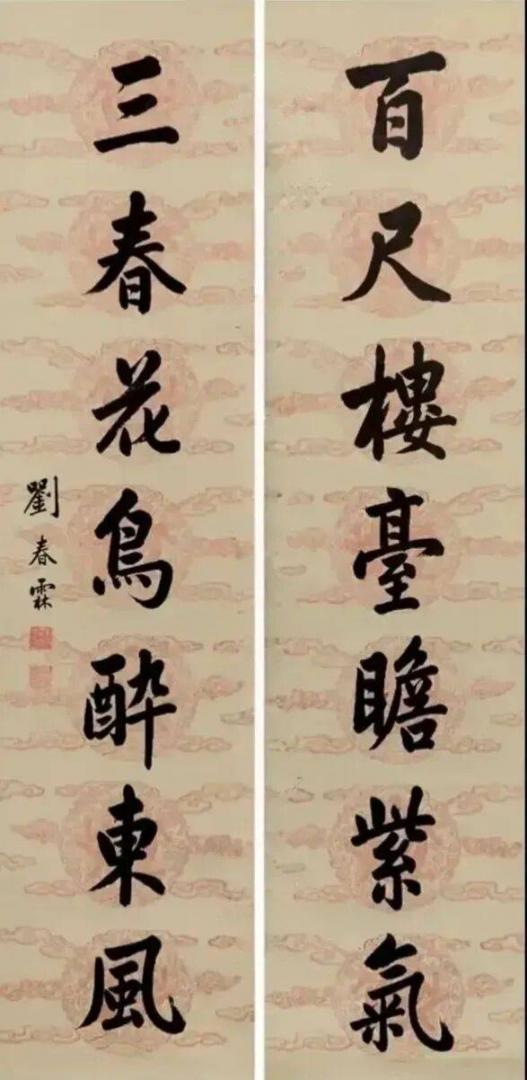 百尺樓臺瞻紫氣
三春花鳥醉東風
劉春霖